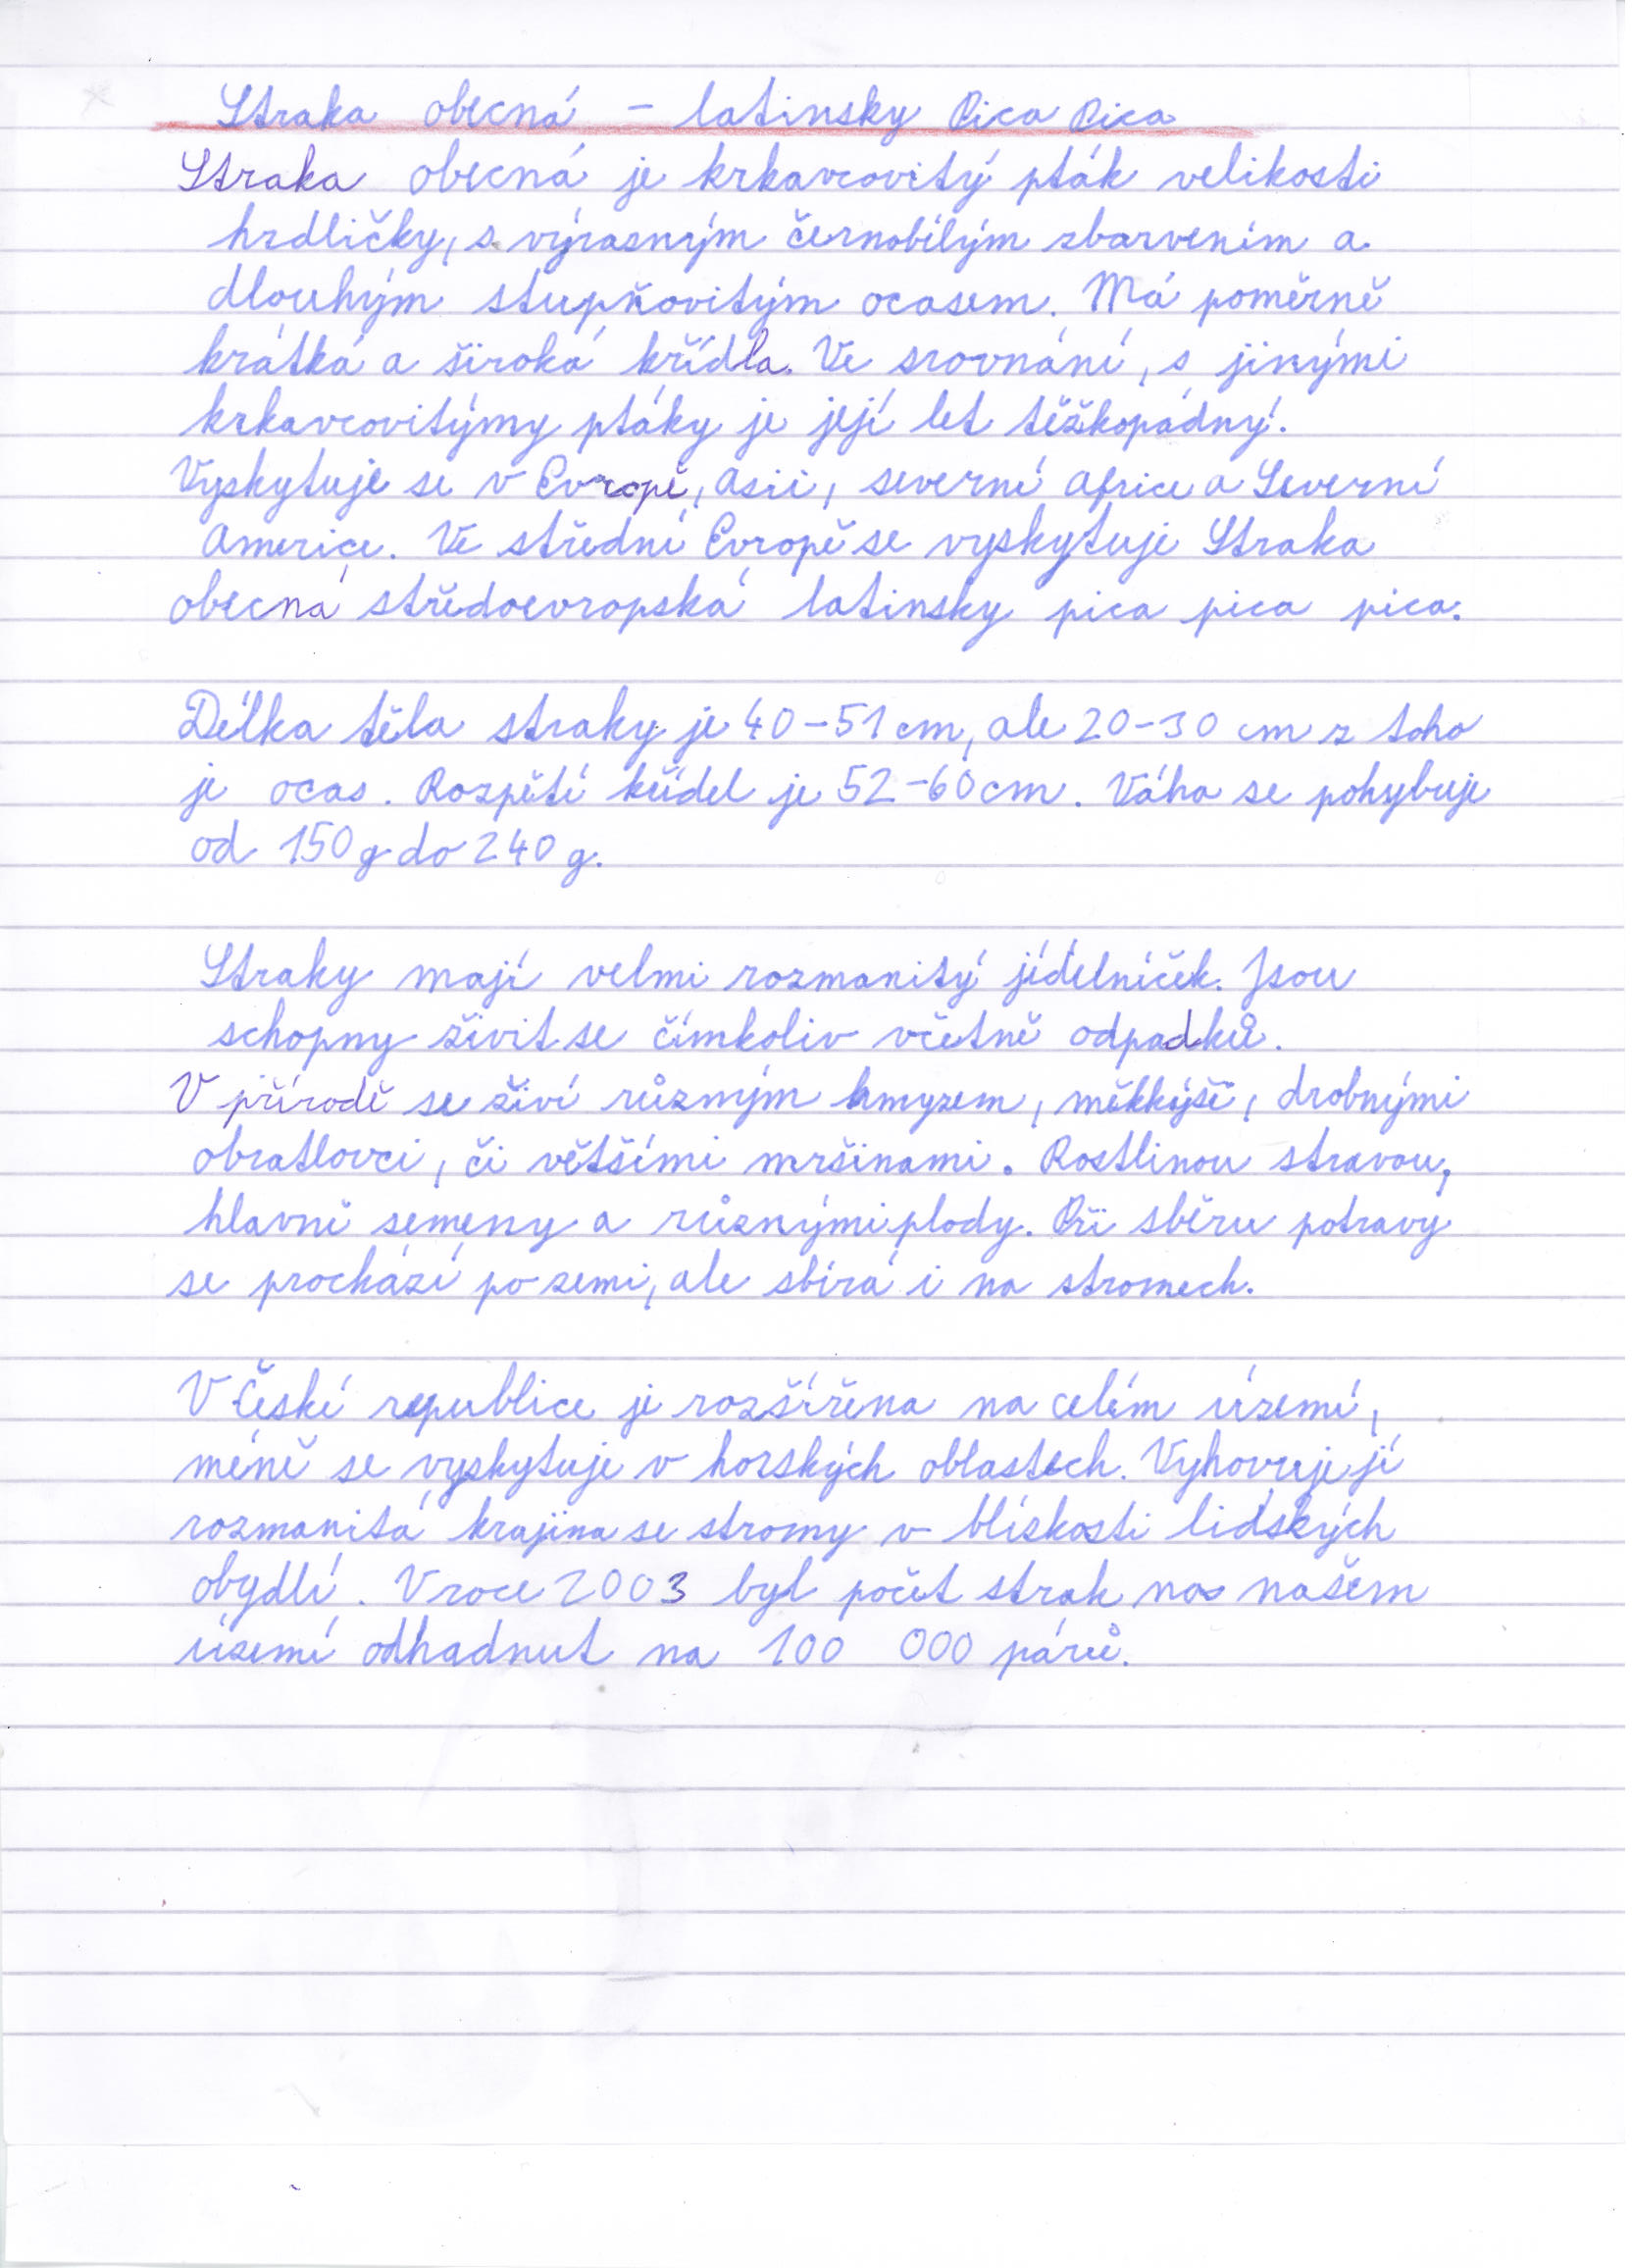 Straka obecná - latinsky Pica Pica
Straka obecná je krkavcovitý pták velikosti
hrdličky, s výrasným černobílým zbarvením a
dlouhým stupňovitým ocasem. Má poměrně
krátká a široká křídla. Ve srovnání, s jinými
krkavcovitýmy ptáky je její let těžkopádný.
Vyskytuje se v Evropě, Asii, severní Africe a Severní
Americe. Ve střední Evropě se vyskytuje Straka
obecná středoevropská latinsky pica pica pica.
Délka těla straky je 40-51 cm, ale 20-30 cm z toho
je ocas. Rozpětí křídel je 52-60 cm. Váha se pohybuje
od 150 g do 240 g.
Straky mají velmi rozmanitý jídelníček. Jsou
schopny živit se čímkoliv včetně odpadků.
V přírodě se živí různým hmyzem, měkkýši, drobnými
obratlovci, či většími mršinami. Rostlinou stravou,
hlavně semeny a různými plody. Při sběru potravy
se prochází po zemi, ale sbírá i na stromech.
V České republice je rozšířena na celém území,
méně se vyskytuje v horských oblastech. Vyhovuje jí
rozmanitá krajina se stromy v blízkosti lidských
obydlí. V roce 2003 byl počet strak na našem
území odhadnut na 100 000 párů.